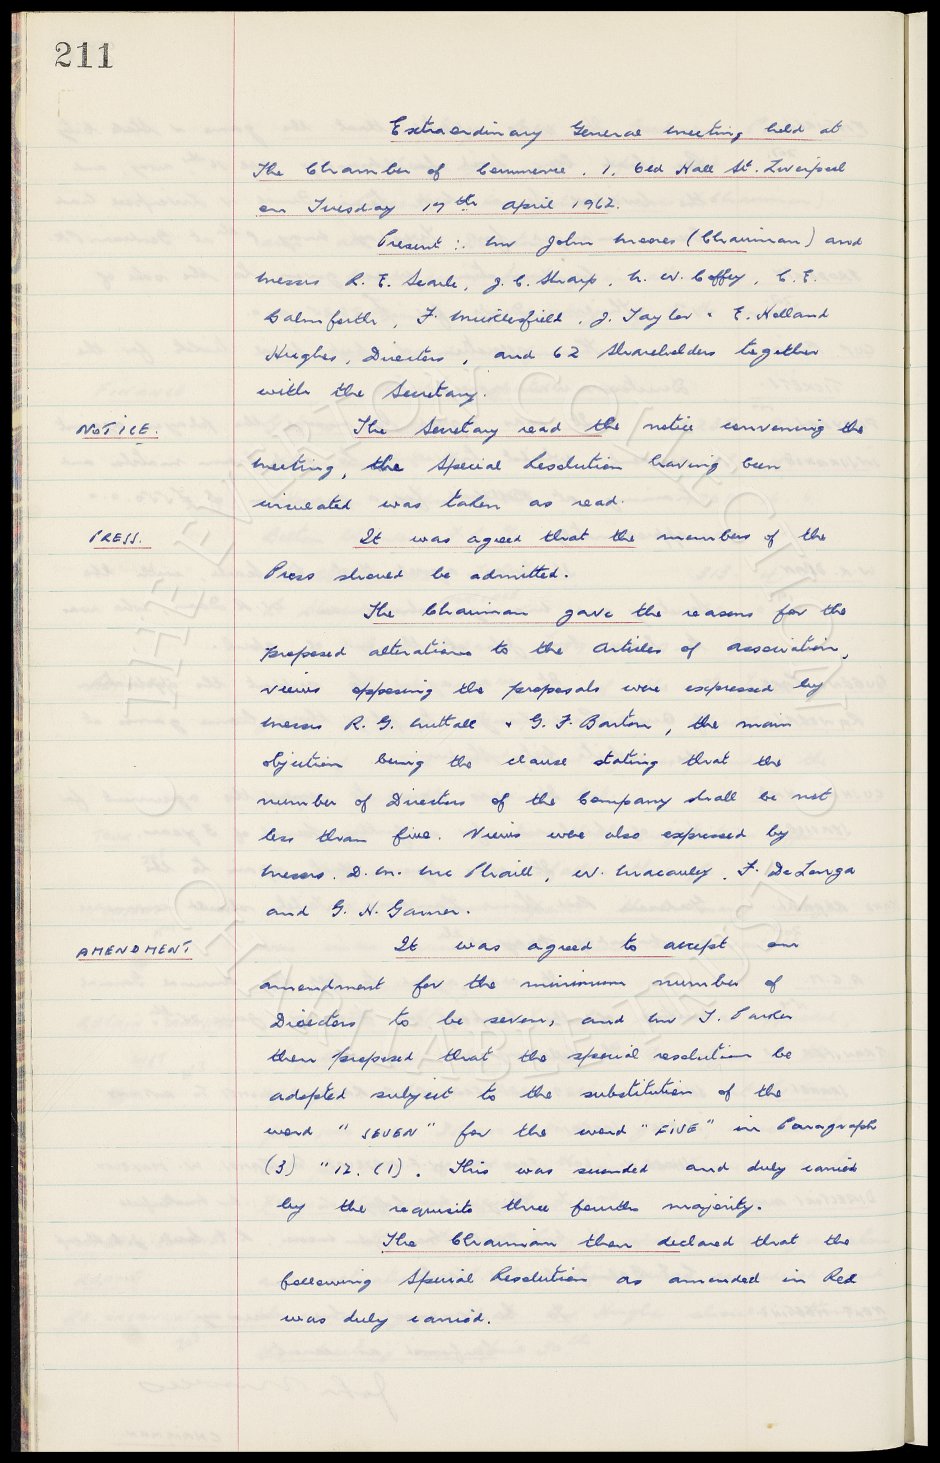 211
Extraordinary General Meeting held at
The Chamber of Commerce, 1, Old Hall St. Liverpool
on Tuesday 17th April 1962.
Present :- Mr John Moores (Chairman) and
Messrs R. E. Searle, J. C. Sharp, H. W. Coffey, C. E.
Balmforth, F. Micklesfield, J. Taylor & E. Holland
Hughes, Directors, and 62 Shareholders together
with the Secretary.
NOTICE. The Secretary read the notice convening the
meeting, the Special Resolution having been
circulated was taken as read.
PRESS. It was agreed that the members of the
Press should be admitted.
The Chairman gave the reasons for the
proposed alterations to the Articles of Association,
views opposing the proposals were expressed by
Messrs R. G. Nuttall & G. F. Barton, the main
objection being the clause stating that the
number of Directors of the Company shall be not
less than five. Views were also expressed by
Messrs. D. M. Mc Phaill, W. Macauley, F. De Longa
and G. H. Garner.
AMENDMENT It was agreed to accept an
amendment for the minimum number of
Directors to be seven, and Mr T. Parker
then proposed that the special resolution be
adopted subject to the substitution of the
word "SEVEN" for the word "FIVE" in Paragraph
(3) "12. (1). This was seconded and duly carried
by the requisite three fourths majority.
The Chairman then declared that the
following Special Resolution as amended in Red
was duly carried.